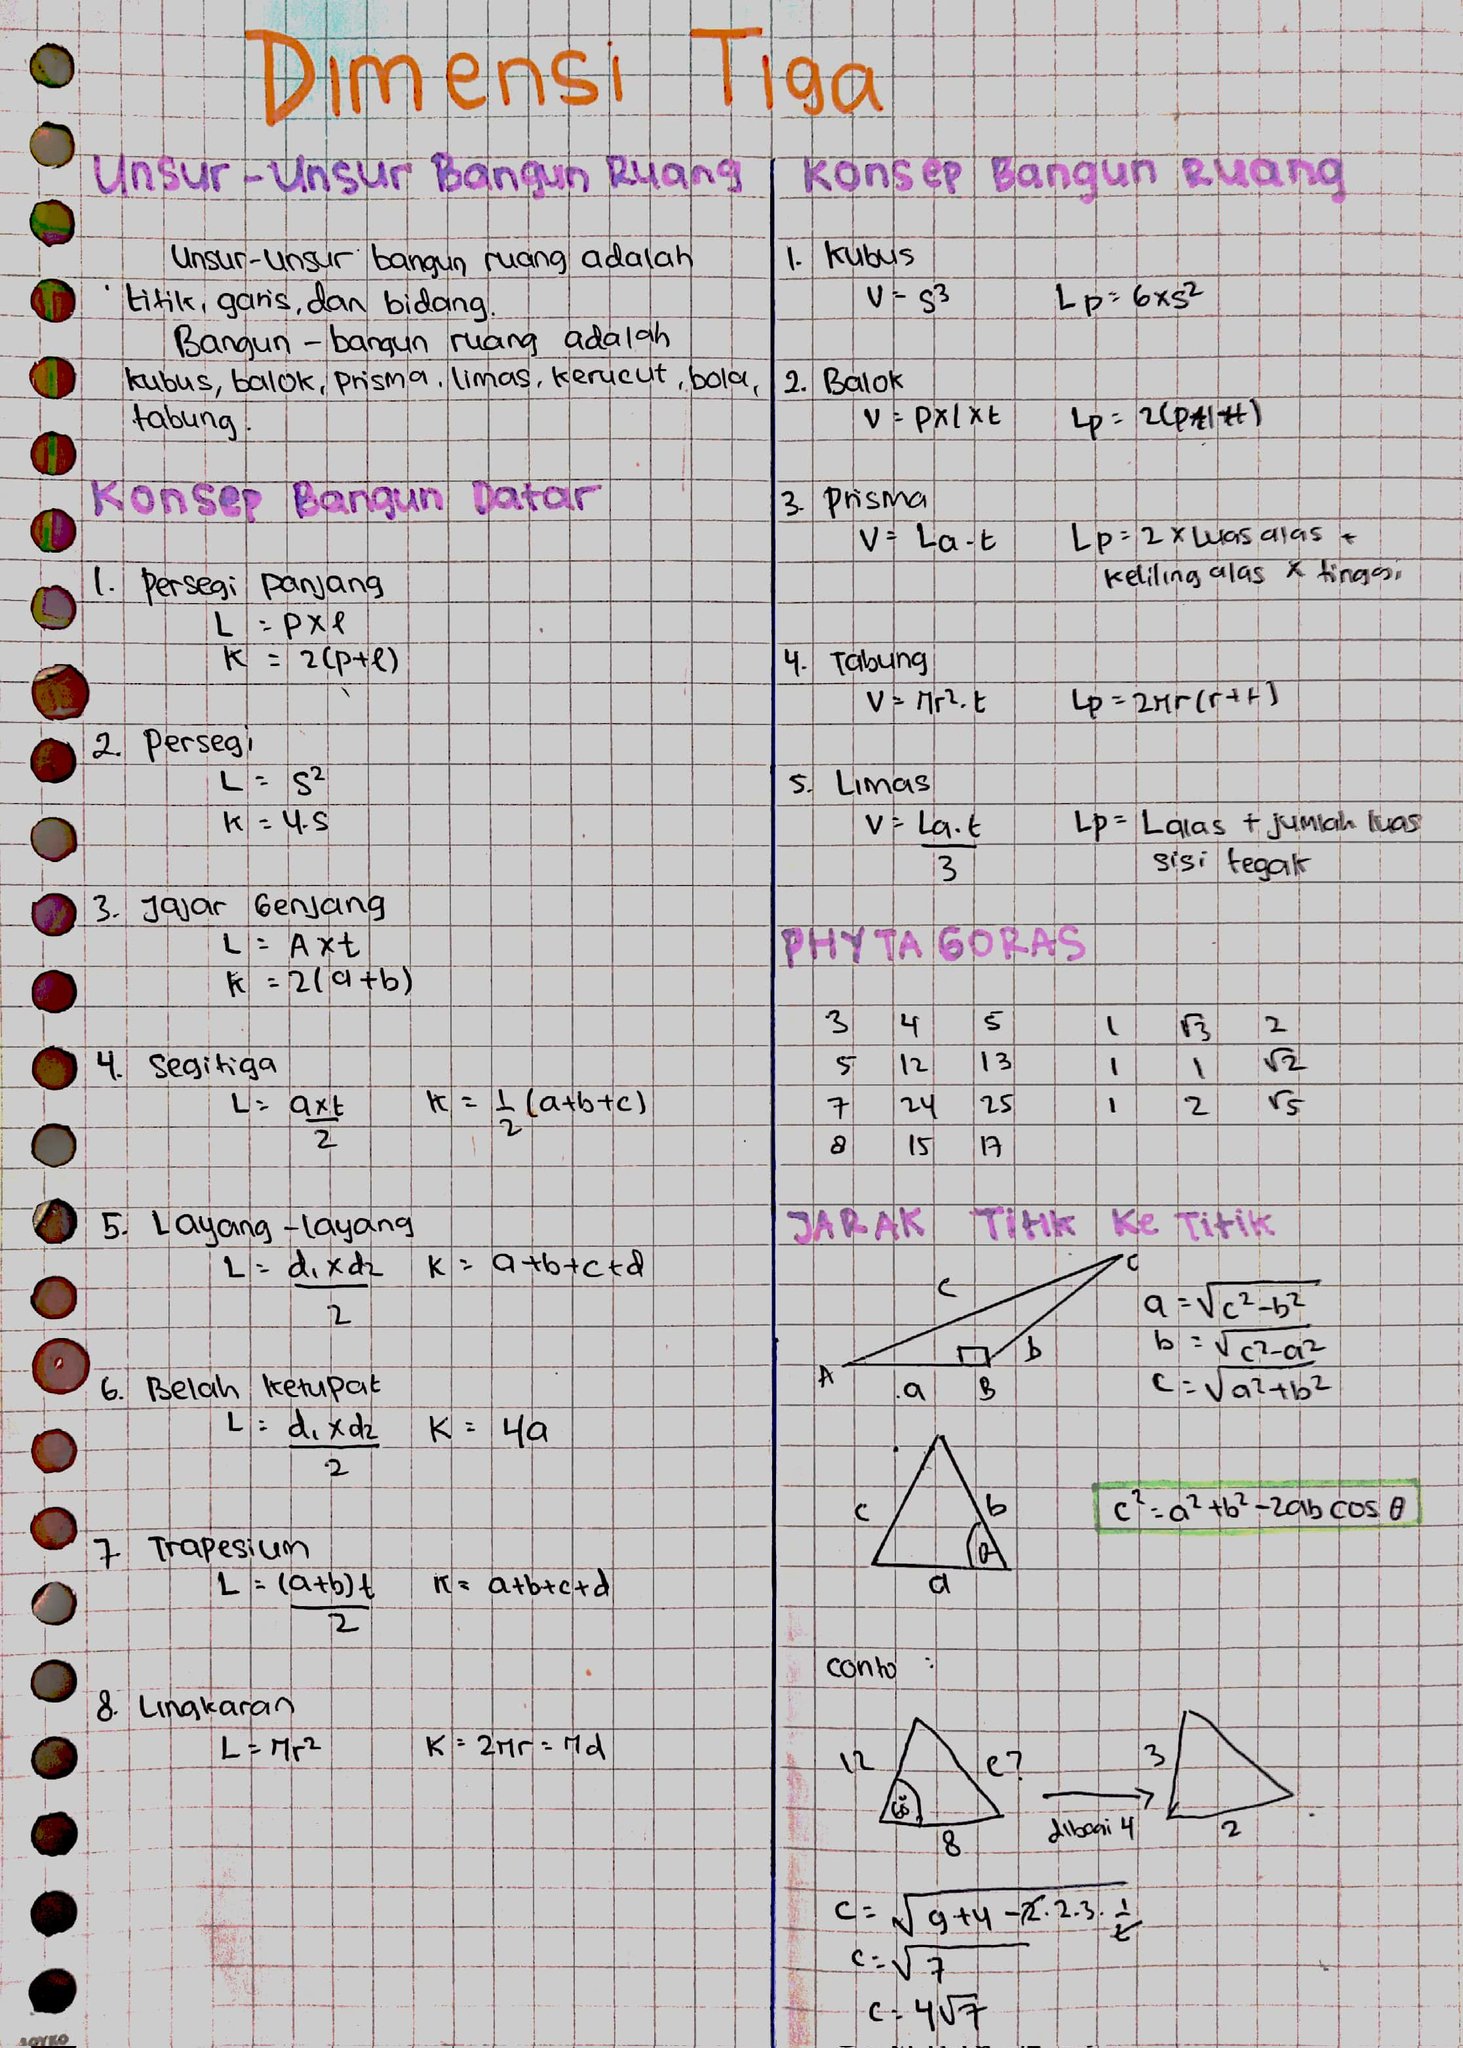 Dimensi Tiga
Unsur-Unsur Bangun Ruang
Unsur-unsur bangun ruang adalah
titik, garis, dan bidang.
Bangun - bangun ruang adalah
kubus, balok, prisma, limas, kerucut, bola,
tabung.
Konsep Bangun Datar
1. Persegi Panjang
L = p x ℓ
K = 2(p+ℓ)
2. Persegi
L = s²
K = 4.s
3. Jajar Genjang
L = A x t
K = 2(a+b)
4. Segitiga
L = axt/2 K = 1/2 (a+b+c)
5. Layang-layang
L = d₁ x d₂/2 K = a+b+c+d
6. Belah Ketupat
L = d₁ x d₂/2 K = 4a
7 Trapesium
L = (a+b)t/2 K = a+b+c+d
8. Lingkaran
L = πr² K = 2πr = πd
Konsep Bangun Ruang
1. Kubus
V = s³ Lp = 6xs²
2. Balok
V = p x l x t Lp =
3. Prisma
V = La . t Lp = 2 x Luas alas +
keliling alas x tinggi
4. Tabung
V = πr² . t Lp = 2πr(r+t)
5. Limas
V = La.t/3 Lp = Lalas + jumlah luas
sisi tegak
PHYTAGORAS
3 4 5 1 √3 2
5 12 13 1 1 √2
7 24 25 1 2 √5
8 15 17
JARAK Titik Ke Titik
C
c
A a B b
a = √c²-b²
b = √c²-a²
c = √a²+b²
c b
a θ
c² = a²+b²-2ab cos θ
conto :
12 c? 3
60°
8 dibagi 4 2
c = √9+4-2.2.3.1/2
c = √7
c = 4√7
JOYKO